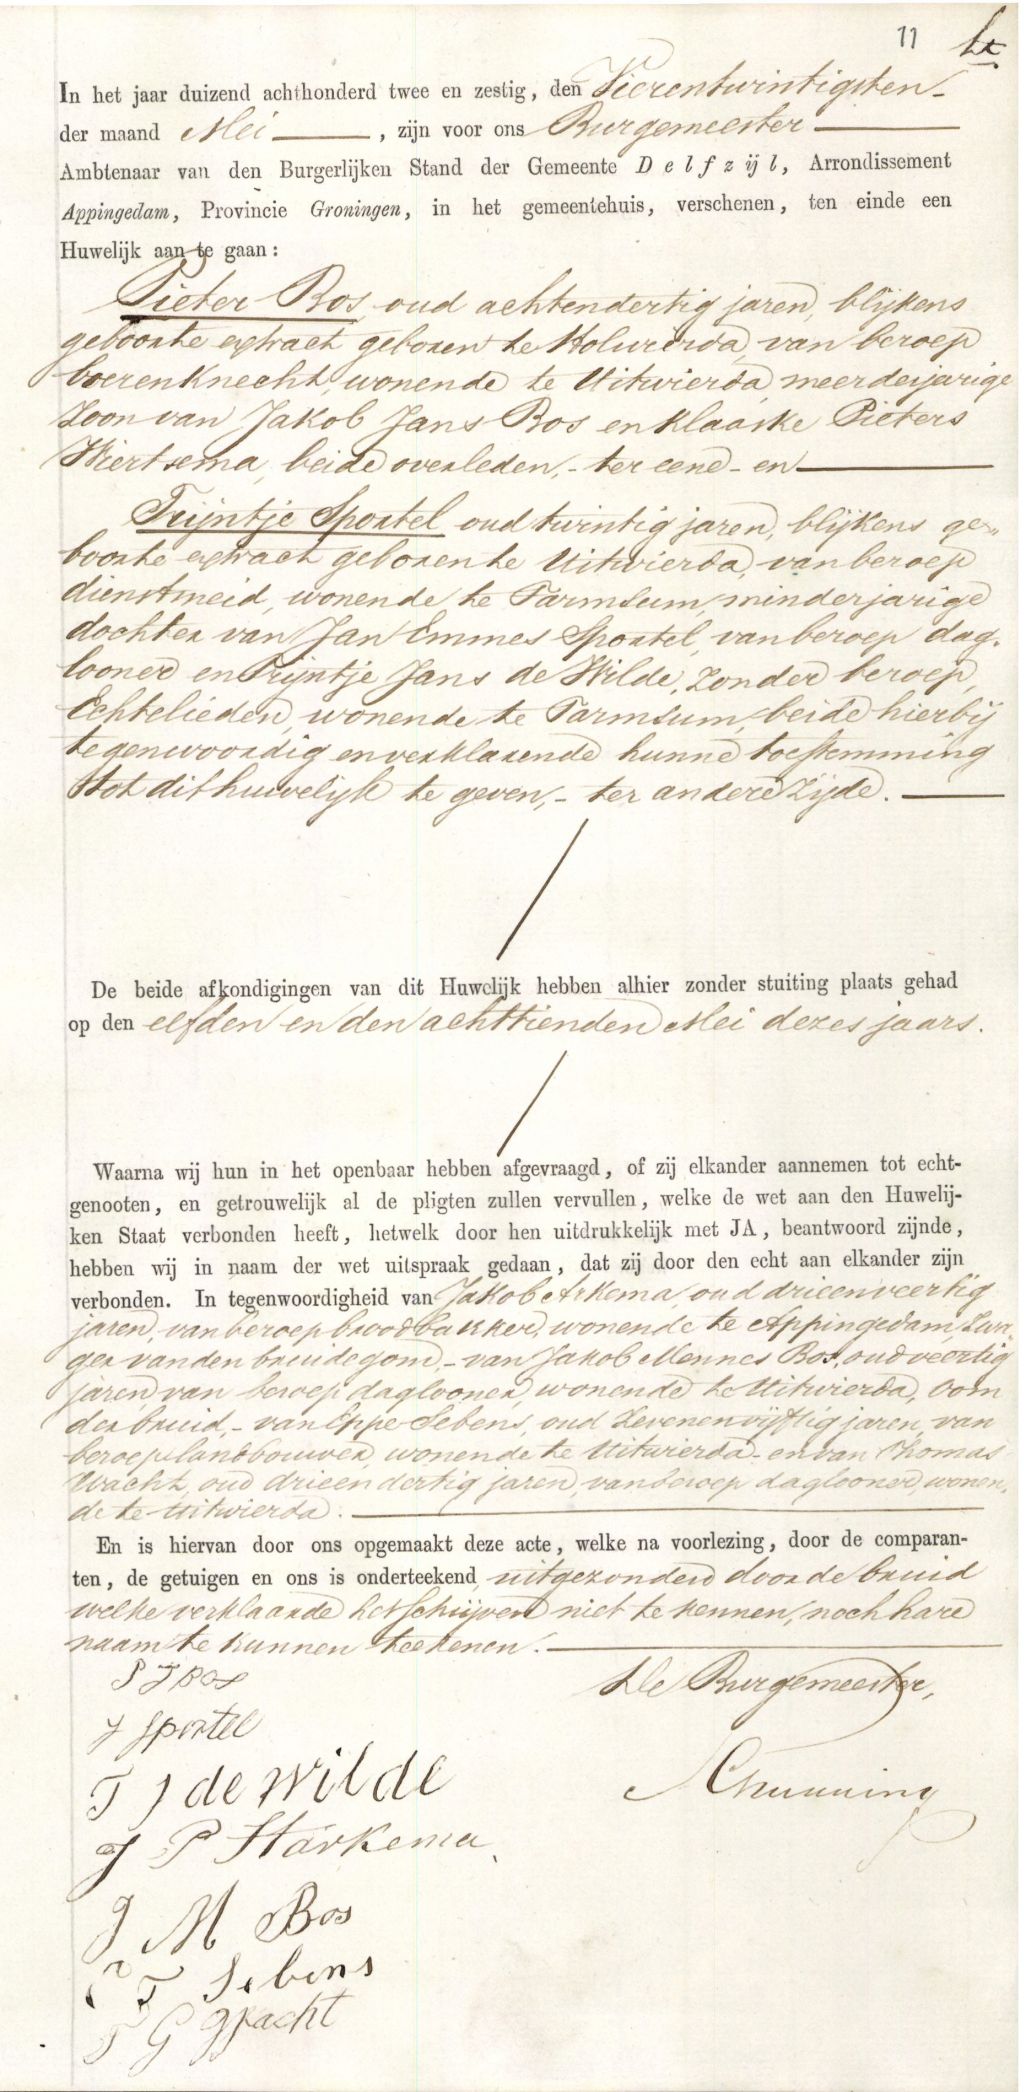 11
In het jaar duizend achthonderd twee en zestig, den Vierentwintigsten
der maand Mei, zijn voor ons Burgemeester
Ambtenaar van den Burgerlijken Stand der Gemeente Delfzijl, Arrondissement
Appingedam, Provincie Groningen, in het gemeentehuis, verschenen, ten einde een
Huwelijk aan te gaan:
Pieter Bos oud achtendertig jaren, blijkens
geboorte extract geboren te Holwierda, van beroep
boerenknecht, wonende te Uitwierda, meerderjarige
Zoon van Jakob Jans Bos en Klaaske Pieters
Wiertsema, beide overleden, - ter eene - en
Trijntje Sportel oud twintig jaren, blijkens ge-
boorte extract geboren te Uitwierda, van beroep
dienstmeid, wonende te Farmsum, minderjarige
dochter van Jan Emmes Sportel, van beroep dag-
looner en Trijntje Jans de Wilde, zonder beroep,
Echtelieden, wonende te Farmsum, beide hierbij
tegenwoordig en verklarende hunne toestemming
tot dit huwelijk te geven, - ter andere Zijde.
De beide afkondigingen van dit Huwelijk hebben alhier zonder stuiting plaats gehad
op den elfden en den achttienden Mei dezes jaars.
Waarna wij hun in het openbaar hebben afgevraagd, of zij elkander aannemen tot echt-
genooten, en getrouwelijk al de pligten zullen vervullen, welke de wet aan den Huwelij-
ken Staat verbonden heeft, hetwelk door hen uitdrukkelijk met JA, beantwoord zijnde,
hebben wij in naam der wet uitspraak gedaan, dat zij door den echt aan elkander zijn
verbonden. In tegenwoordigheid van Jakob Arkema, oud drieenveertig
jaren, van beroep broodbakker, wonende te Appingedam, Zwa-
ger van den bruidegom, - van Jakob Mennes Bos, oud veertig
jaren, van beroep daglooner, wonende te Uitwierda, Oom
der bruid, - van Eppe Sebens, oud Zevenenvijftig jaren, van
beroep landbouwer, wonende te Uitwierda - en van Thomas
Wacht, oud drieendertig jaren, van beroep daglooner, wonen-
de te Uitwierda.
En is hiervan door ons opgemaakt deze acte, welke na voorlezing, door de comparan-
ten, de getuigen en ons is onderteekend uitgezonderd door de bruid
welke verklaarde het schrijven niet te kennen, noch hare
naam te kunnen teekenen.
P J Bos
De Burgemeester,
J Sportel
T J de Wilde
J P Harkema
J M Bos
T Sebens
T G Wacht